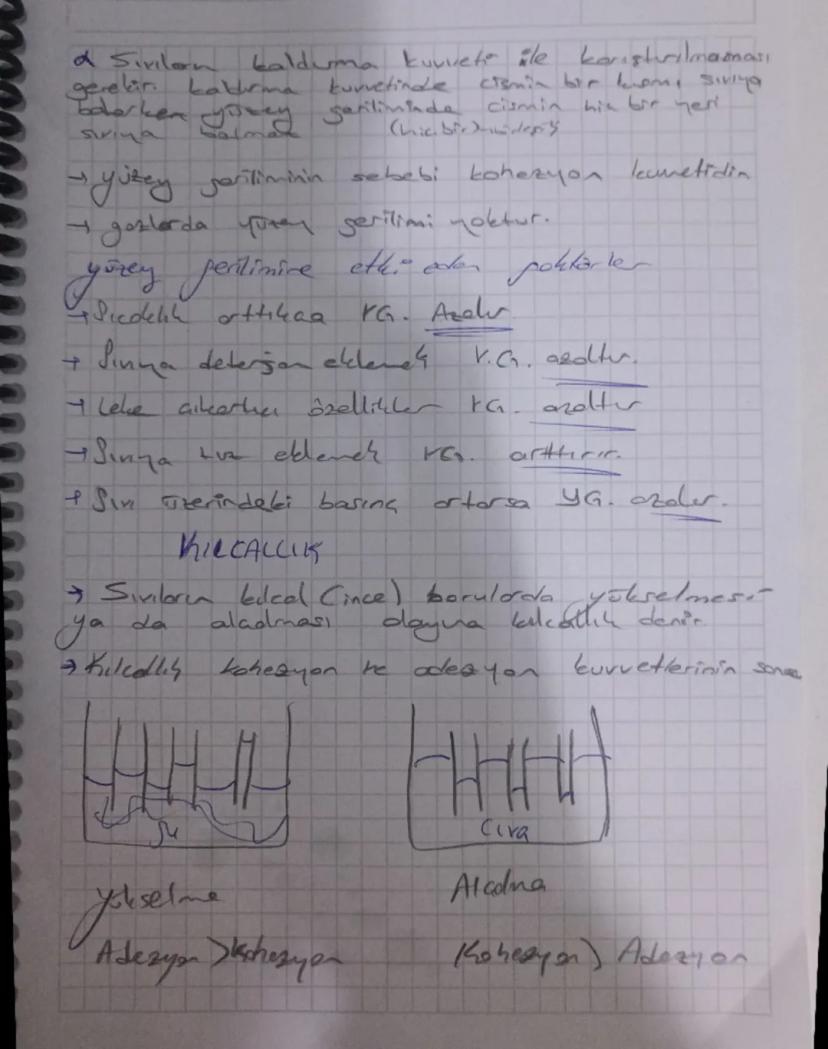 Sıvıların kaldırma kuvveti ile karıştırılmaması
gerekir. kaldırma kuvvetinde cismin bir kısmı sıvıya
batarken yüzey geriliminde cismin hiç bir yeri
sıvıya batmaz (hiç bir)
→ yüzey geriliminin sebebi kohezyon kuvvetidir
→ gazlarda yüzey gerilimi yoktur.
yüzey gerilimine etki eden faktörler
→ Sıcaklık arttıkça YG. Azalır
→ Sıvıya deterjan eklemek Y.G. azaltır.
→ Leke çıkartıcı özellikler YG. azaltır
→ Sıvıya tuz eklemek YG. arttırır.
→ Sıvı üzerindeki basınç artarsa YG. azalır.
KILCALLIK
→ Sıvıların kılcal (ince) borularda yükselmesi
ya da alçalması olayına kılcallık denir.
→ Kılcallık kohezyon ve adezyon kuvvetlerinin
Su
Cıva
yükselme
Alçalma
Adezyon > Kohezyon
Kohezyon > Adezyon